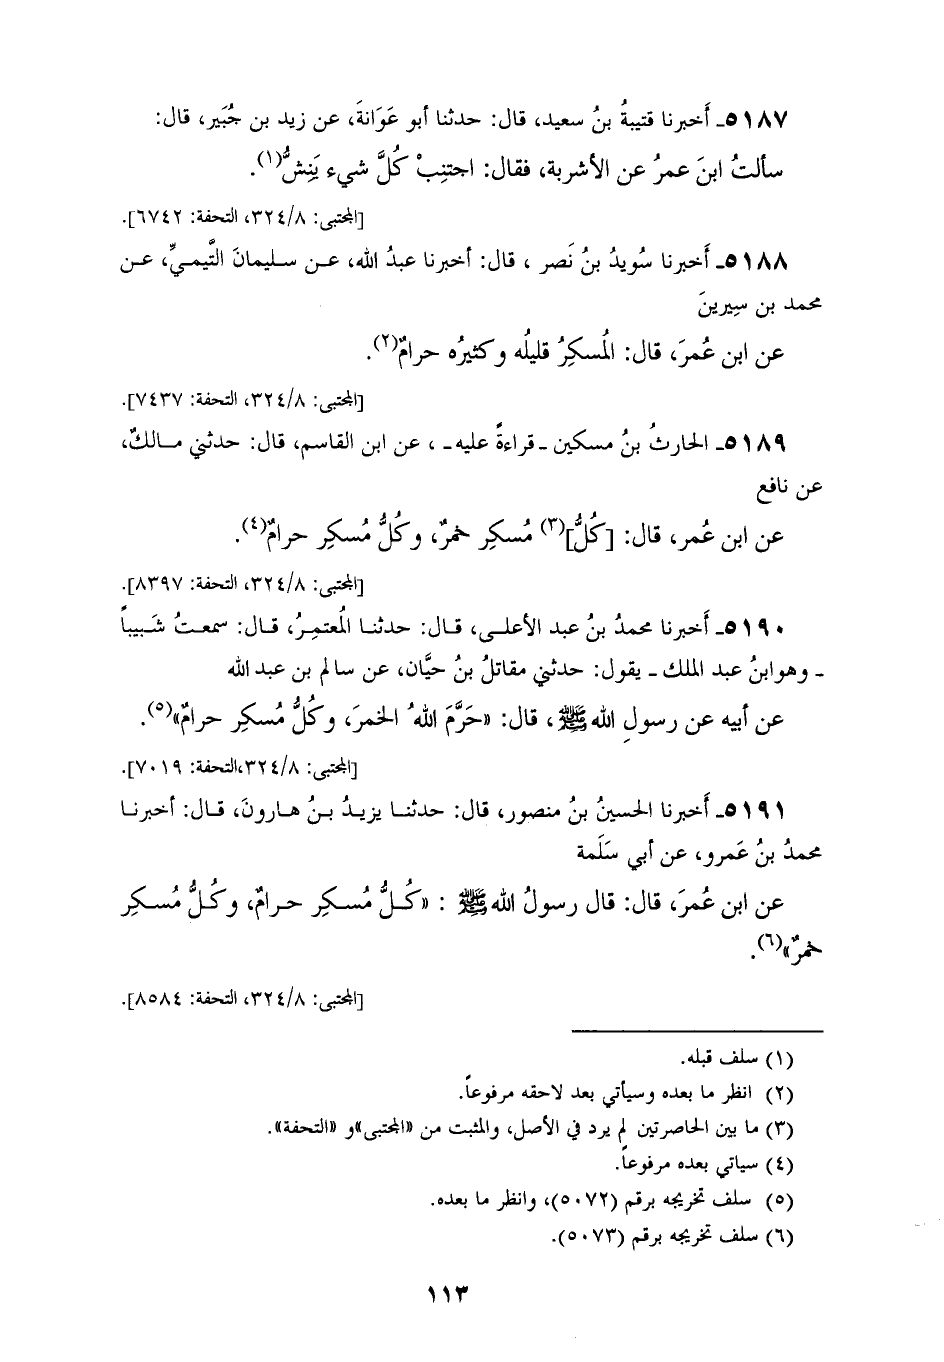 ٥١٨٧ـ أَخبرنا قتيبةُ بنُ سعيد، قال: حدثنا أبو عَوَانةَ، عن زيد بن جُبَير، قال:
سألتُ ابنَ عمرُ عن الأشربة، فقال: اجتنِبْ كُلَّ شيء يَنِشُّ(١).
[المجتبى: ٣٢٤/٨، التحفة: ٦٧٤٢].
٥١٨٨ـ أَخبرنا سُويدُ بنُ نَصر ، قال: أخبرنا عبدُ الله، عـن سـليمانَ التَّيميِّ، عـن
محمد بن سِيرينَ
عن ابن عُمرَ، قال: المُسكِرُ قليلُه وكثيرُه حرامٌ(٢).
[المجتبى: ٣٢٤/٨، التحفة: ٧٤٣٧].
٥١٨٩ـ الحارثُ بنُ مسكين ـ قراءةً عليه ـ ، عن ابن القاسم، قال: حدثني مـالكٌ،
عن نافع
عن ابن عُمر، قال: [كُلُّ](٣) مُسكِر خمرٌ، وكُلُّ مُسكِر حرامٌ(٤).
[المجتبى: ٣٢٤/٨، التحفة: ٨٣٩٧].
٥١٩٠ـ أَخبرنا محمدُ بنُ عبد الأعلـى، قـال: حدثنـا المُعتمِرُ، قـال: سمعـتُ شَـبيباً
ـ وهوابنُ عبد الملك ـ يقول: حدثني مقاتلُ بنُ حيَّان، عن سالم بن عبد الله
عن أبيه عن رسولِ الله ﷺ، قال: «حَرَّمَ اللهُ الخمرَ، وكُلُّ مُسكِر حرامٌ»(٥).
[المجتبى: ٣٢٤/٨،التحفة: ٧٠١٩].
٥١٩١ـ أَخبرنا الحسينُ بنُ منصور، قال: حدثنـا يزيـدُ بـنُ هـارونَ، قـال: أخبرنـا
محمدُ بنُ عَمرو، عن أبي سَلَمة
عن ابن عُمرَ، قال: قال رسولُ الله ﷺ : «كُـلُّ مُسـكِر حـرامٌ، وكُـلُّ مُسـكِر
خمرٌ»(٦).
[المجتبى: ٣٢٤/٨، التحفة: ٨٥٨٤].
(١) سلف قبله.
(٢) انظر ما بعده وسيأتي بعد لاحقه مرفوعاً.
(٣) ما بين الحاصرتين لم يرد في الأصل، والمثبت من «المجتبى»و «التحفة».
(٤) سياتي بعده مرفوعاً.
(٥) سلف تخريجه برقم (٥٠٧٢)، وانظر ما بعده.
(٦) سلف تخريجه برقم (٥٠٧٣).
١١٣